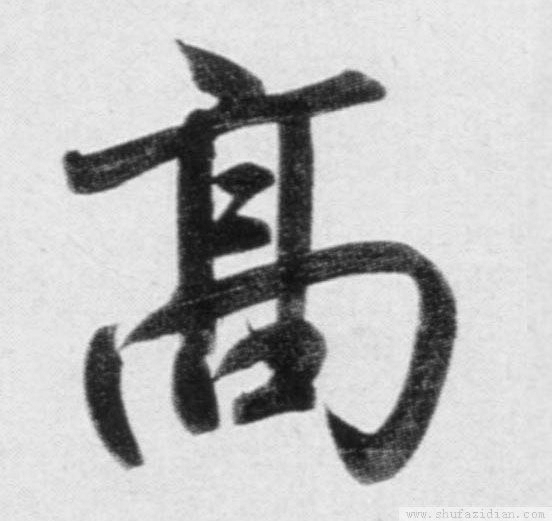 髙
www.shufazidian.com